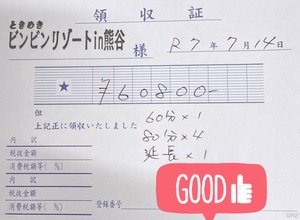 領収証
ときめき
ビンビンリゾートin熊谷
様 R7年7月14日
★ ¥60800-
但
上記正に領収いたしました
60分×1
80分×4
延長×1
内訳
税抜金額
消費税額等( %)
税抜金額
消費税額等( %)
登録番号
GOOD